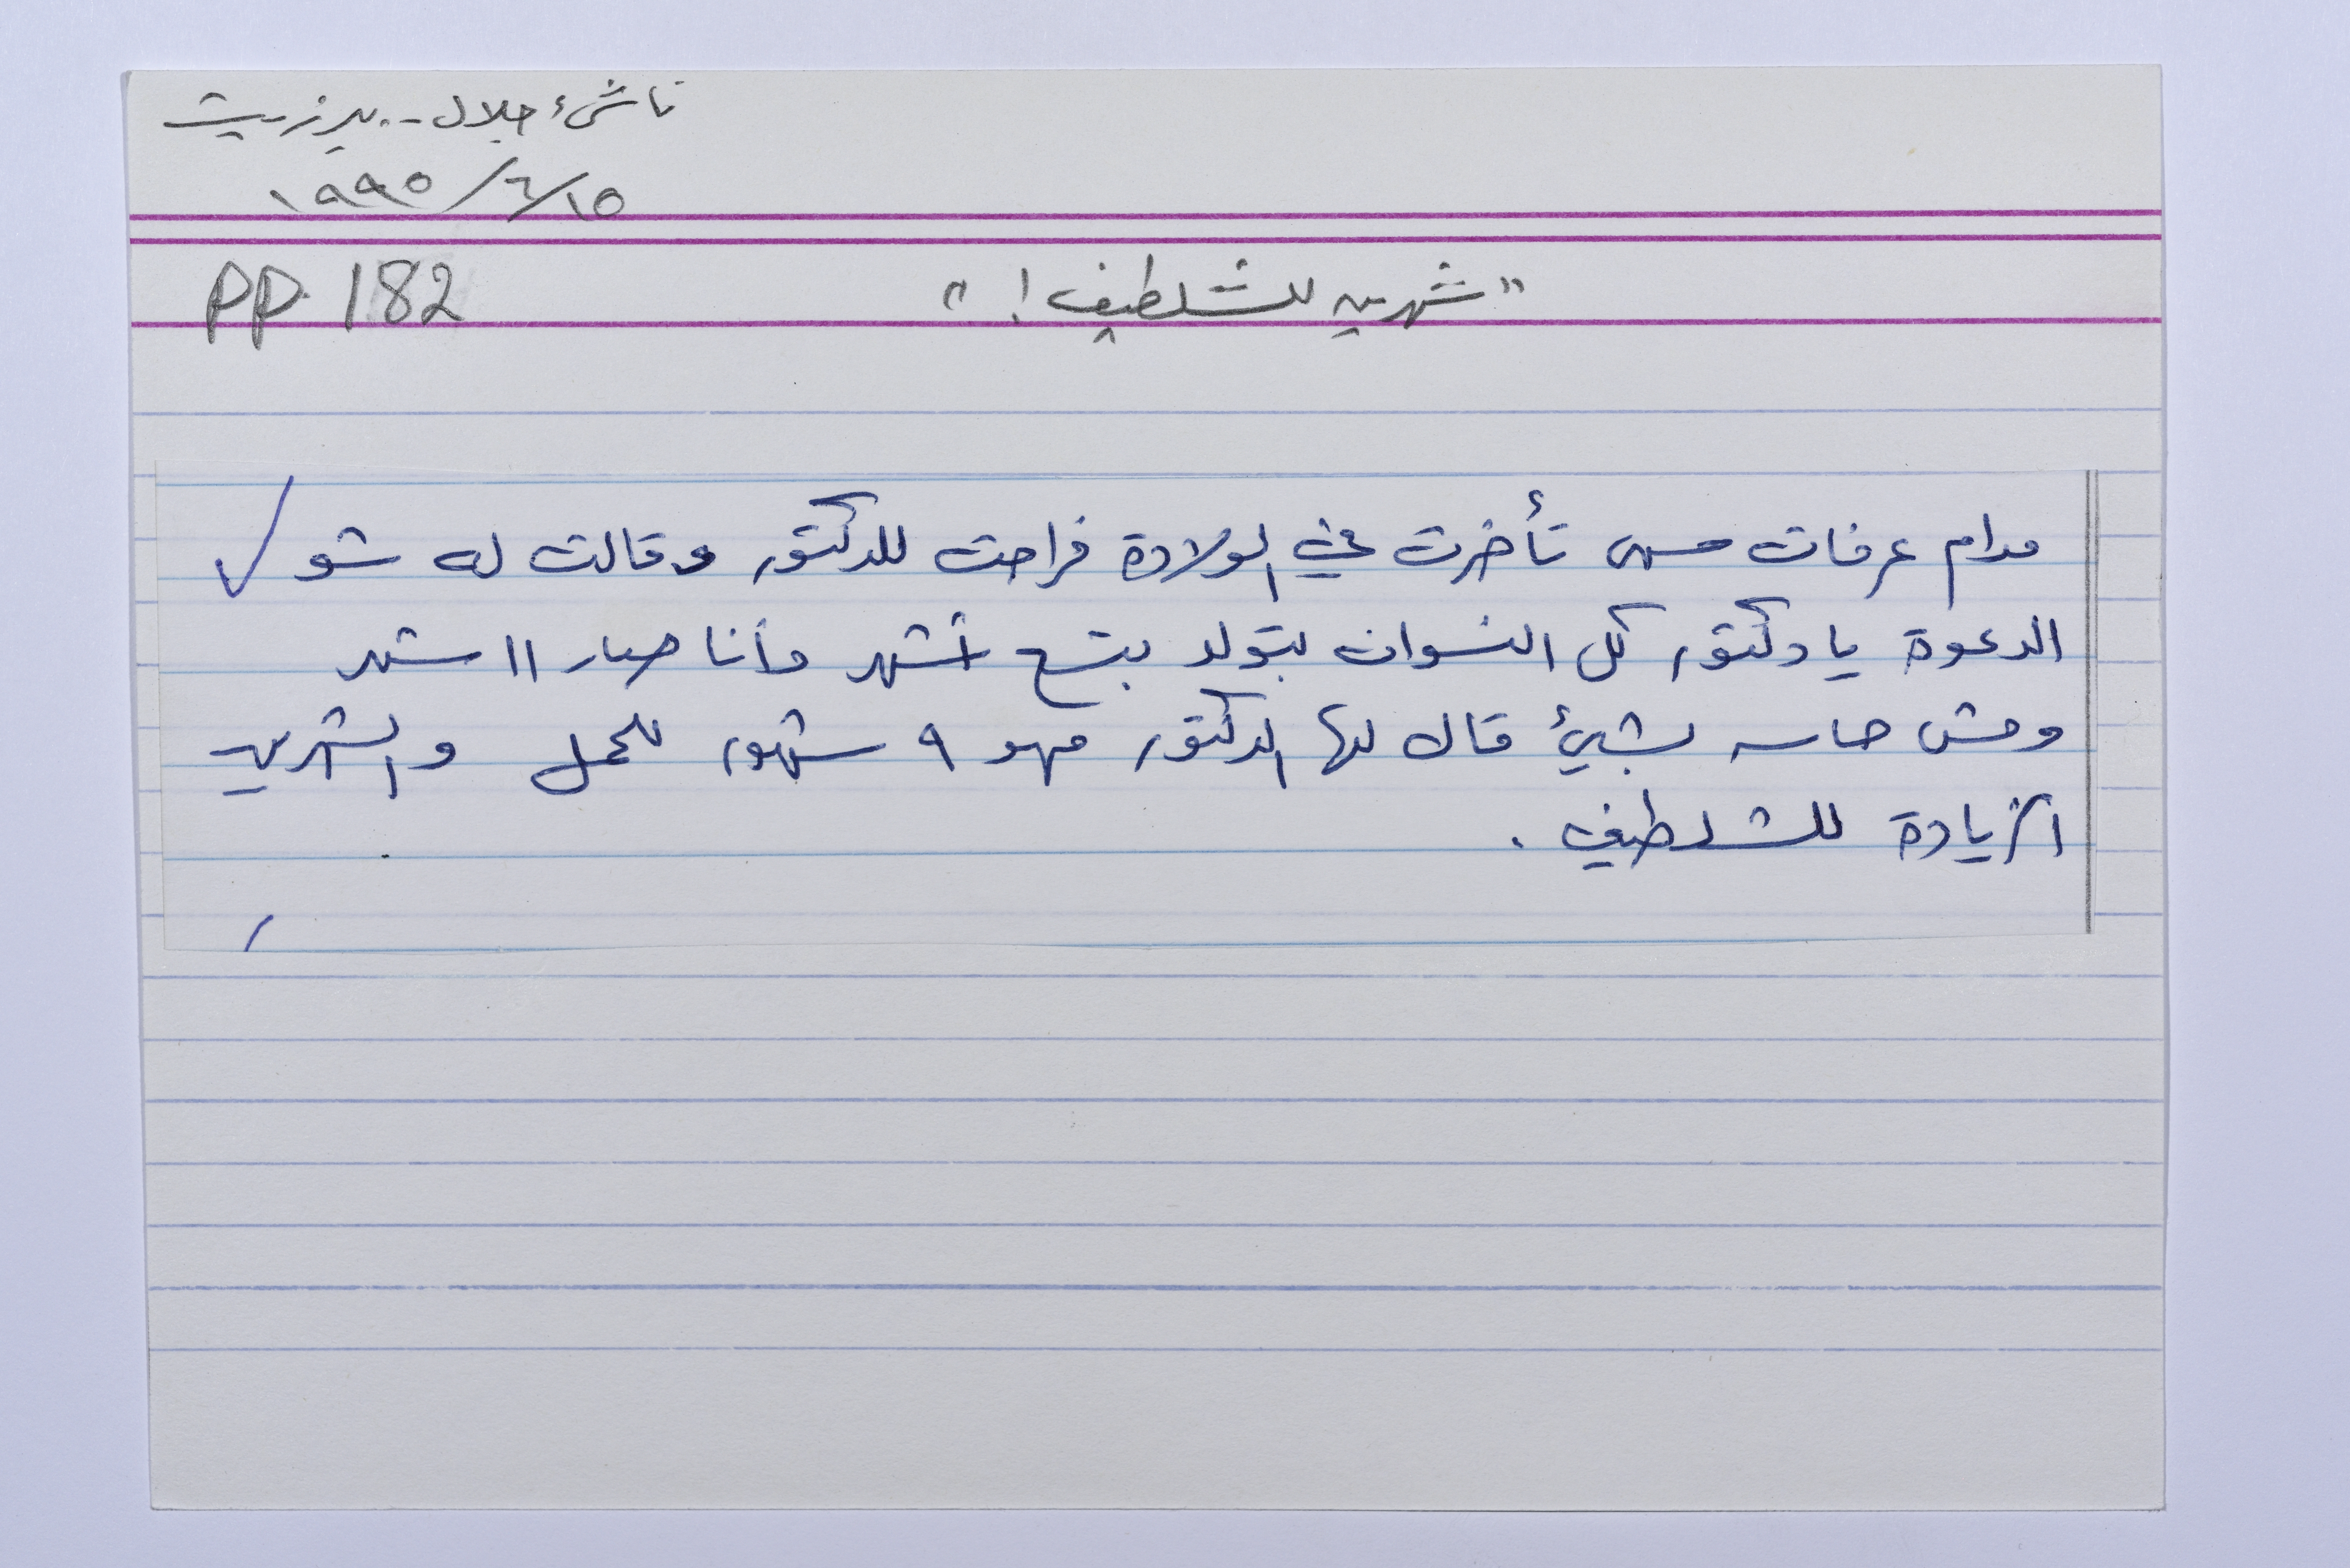 ناشئ جلال - بيرزيت
١٩٩٥/٦/١٥
"شهرين للشلطيف!"
PP 182
مدام عرفات تأخرت في الولادة فراحت للدكتور وقالت له شو
الدعوة يا دكتور كل النسوان بتولد بتسع أشهر وأنا صار ١١ شهر
ومش حاسه بشيئ قال لها الدكتور مهو ٩ شهور للحمل والشهرين
الزيادة للشلطيف .